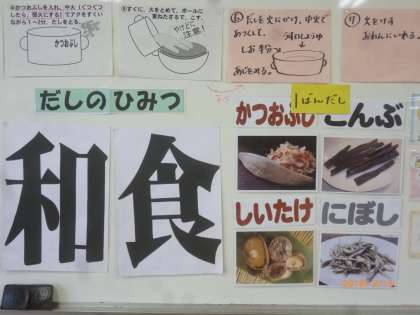 ④かつおぶしを入れ、中火(ぐつぐつ
したら、弱火にする)でアクをすくい
ながら1~2分、だしをとる。
かつおぶし
⑤すぐに、火をとめて、ボールに
重ねたざるで、こす。
やけどに
注意!
⑥だしを火にかけ、中火で
あつくして、
しお 半分
うす口しょうゆ
あじをみる。
⑦
だしのひみつ
1ばんだし
和食
かつおぶし
こんぶ
しいたけ
にぼし